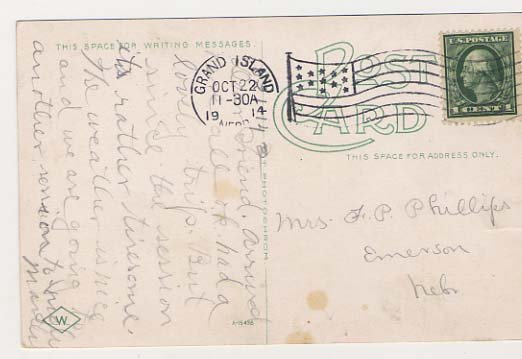 THIS SPACE FOR WRITING MESSAGES.
POST CARD
THIS SPACE FOR ADDRESS ONLY.
GRAND ISLAND
OCT 22
11-30A
19 14
NEBR
U.S. POSTAGE
1 CENT 1
Friend. Arrived
all ok had a
lovely trip. But
since the session
its rather tiresome.
The weather is nice
and we are going
another session to
Mrs. F. P. Phillips
Emerson
Nebr
PHOTOCHROM
A-15498
W